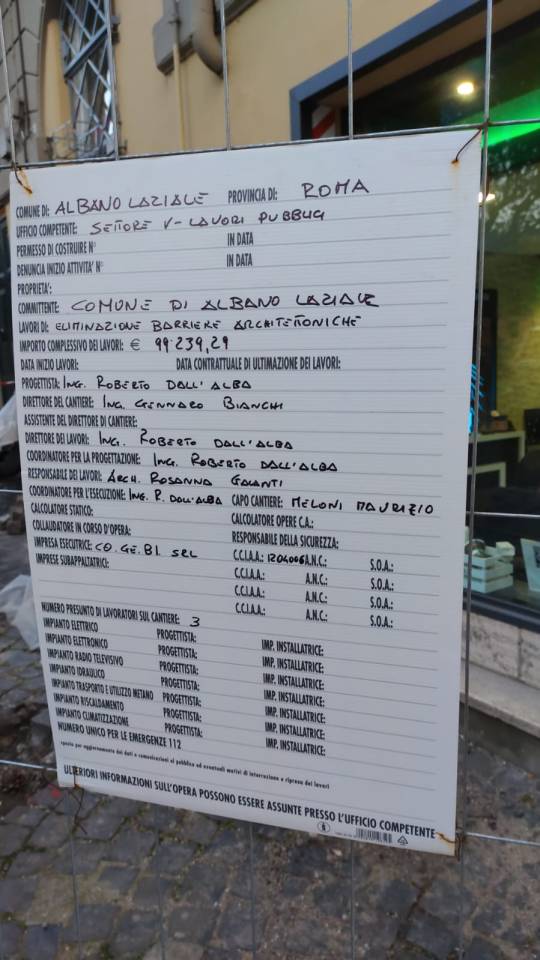 COMUNE DI: ALBANO LAZIALE PROVINCIA DI: ROMA
UFFICIO COMPETENTE: SETTORE V - LAVORI PUBBLICI
PERMESSO DI COSTRUIRE N° IN DATA
DENUNCIA INIZIO ATTIVITA' N° IN DATA
PROPRIETA':
COMMITTENTE: COMUNE DI ALBANO LAZIALE
LAVORI DI: ELIMINAZIONE BARRIERE ARCHITETTONICHE
IMPORTO COMPLESSIVO DEI LAVORI: € 99.239,29
DATA INIZIO LAVORI: DATA CONTRATTUALE DI ULTIMAZIONE DEI LAVORI:
PROGETTISTA: ING. ROBERTO DALL'ALBA
DIRETTORE DEL CANTIERE: ING. GENNARO BIANCHI
ASSISTENTE DEL DIRETTORE DI CANTIERE:
DIRETTORE DEI LAVORI: ING. ROBERTO DALL'ALBA
COORDINATORE PER LA PROGETTAZIONE: ING. ROBERTO DALL'ALBA
RESPONSABILE DEI LAVORI: ARCH. ROSANNA GALANTI
COORDINATORE PER L'ESECUZIONE: ING. R. DALL'ALBA CAPO CANTIERE: MELONI MAURIZIO
CALCOLATORE STATICO: CALCOLATORE OPERE C.A.:
COLLAUDATORE IN CORSO D'OPERA: RESPONSABILE DELLA SICUREZZA:
IMPRESA ESECUTRICE: CO.GE.BI. SRL C.C.I.A.A.: 1204006 A.N.C.: S.O.A.:
IMPRESE SUBAPPALTATRICI: C.C.I.A.A.: A.N.C.: S.O.A.:
C.C.I.A.A.: A.N.C.: S.O.A.:
C.C.I.A.A.: A.N.C.: S.O.A.:
NUMERO PRESUNTO DI LAVORATORI SUL CANTIERE: 3
IMPIANTO ELETTRICO PROGETTISTA: IMP. INSTALLATRICE:
IMPIANTO ELETTRONICO PROGETTISTA: IMP. INSTALLATRICE:
IMPIANTO RADIO TELEVISIVO PROGETTISTA: IMP. INSTALLATRICE:
IMPIANTO IDRAULICO PROGETTISTA: IMP. INSTALLATRICE:
IMPIANTO TRASPORTO E UTILIZZO METANO PROGETTISTA: IMP. INSTALLATRICE:
IMPIANTO RISCALDAMENTO PROGETTISTA: IMP. INSTALLATRICE:
IMPIANTO CLIMATIZZAZIONE PROGETTISTA: IMP. INSTALLATRICE:
NUMERO UNICO PER LE EMERGENZE 112
spazio per aggiornamento dei dati o comunicazioni al pubblico ed eventuali motivi di interruzione e ripresa dei lavori
ULTERIORI INFORMAZIONI SULL'OPERA POSSONO ESSERE ASSUNTE PRESSO L'UFFICIO COMPETENTE